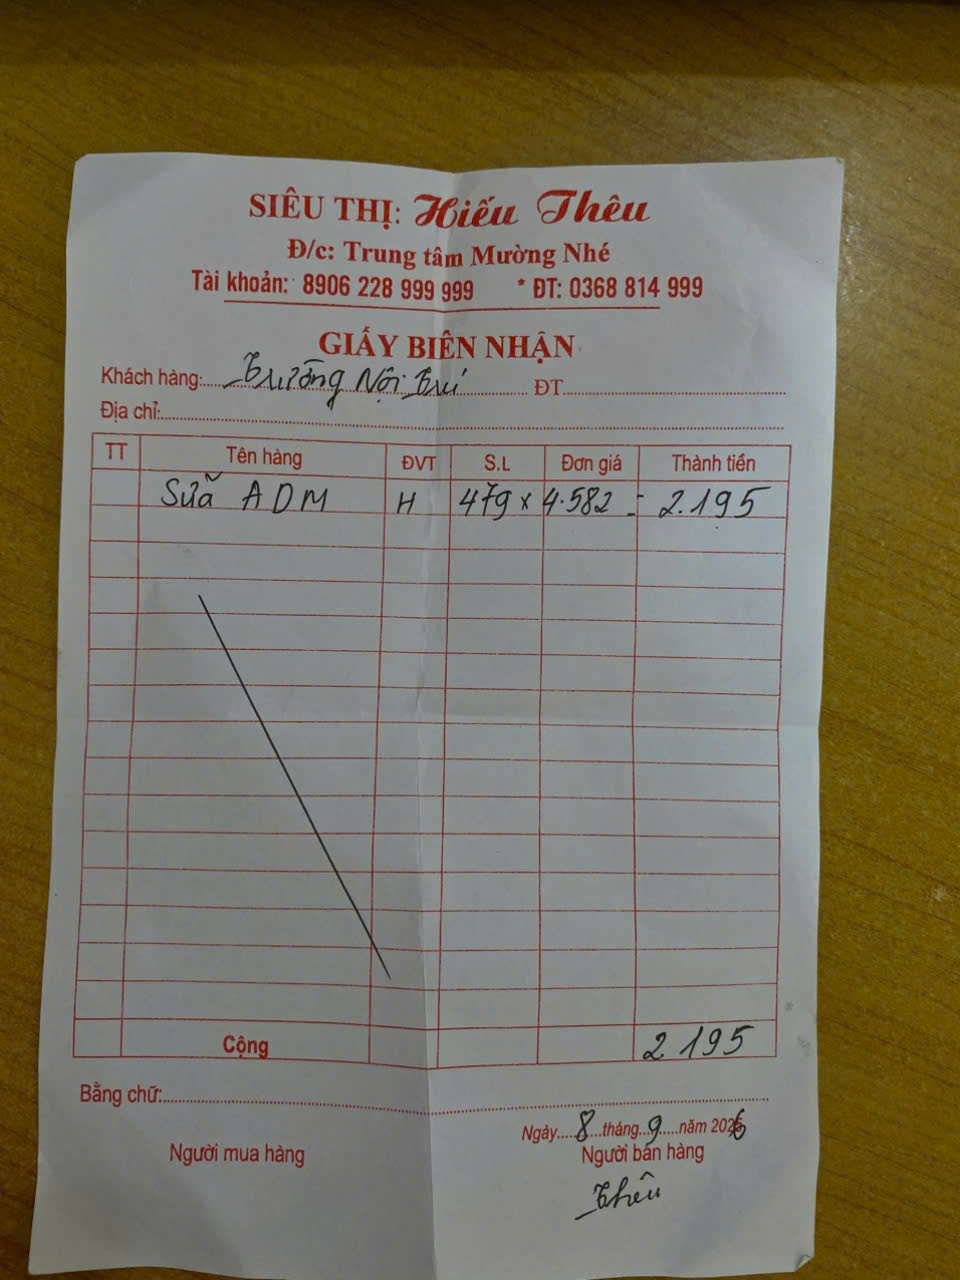 SIÊU THỊ: Hiếu Thêu
Đ/c: Trung tâm Mường Nhé
Tài khoản: 8906 228 999 999 * ĐT: 0368 814 999
GIẤY BIÊN NHẬN
Khách hàng: Trường Nội Trú ĐT
Địa chỉ:
TT Tên hàng ĐVT S.L Đơn giá Thành tiền
Sữa ADM H 479 x 4.582 = 2.195
Cộng 2 195
Bằng chữ:
Ngày 8 tháng 9 năm 2026
Người mua hàng Người bán hàng
Thêu